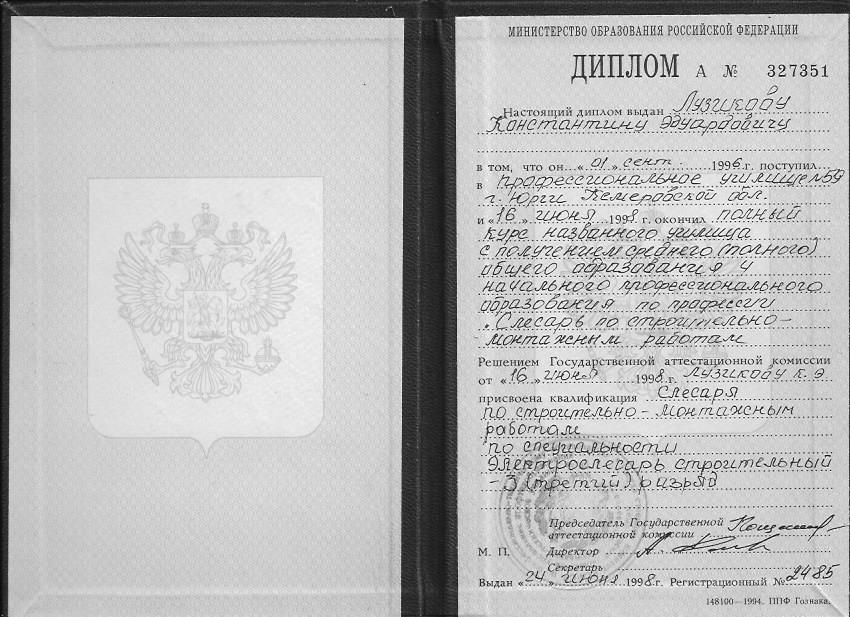 МИНИСТЕРСТВО ОБРАЗОВАНИЯ РОССИЙСКОЙ ФЕДЕРАЦИИ
ДИПЛОМ А № 327351
Настоящий диплом выдан Лузгикову
Константину Эдуардовичу
в том, что он «01» сент. 1996 г. поступил
в профессиональное училище №59
г. Юрги Кемеровской обл.
и «16» июня 1998 г. окончил полный
курс названного училища
с получением среднего (полного)
общего образования и
начального профессионального
образования по профессии
"Слесарь по строительно-
монтажным работам
Решением Государственной аттестационной комиссии
от «16» июня 1998 г. Лузгикову К. Э
присвоена квалификация Слесаря
по строительно-монтажным
работам
по специальности
Электрослесарь строительный
- 3 (третий) разряд
Председатель Государственной
аттестационной комиссии
М. П. Директор
Секретарь
Выдан «24» июня 1998 г. Регистрационный № 2485
148100—1994. ППФ Гознака.